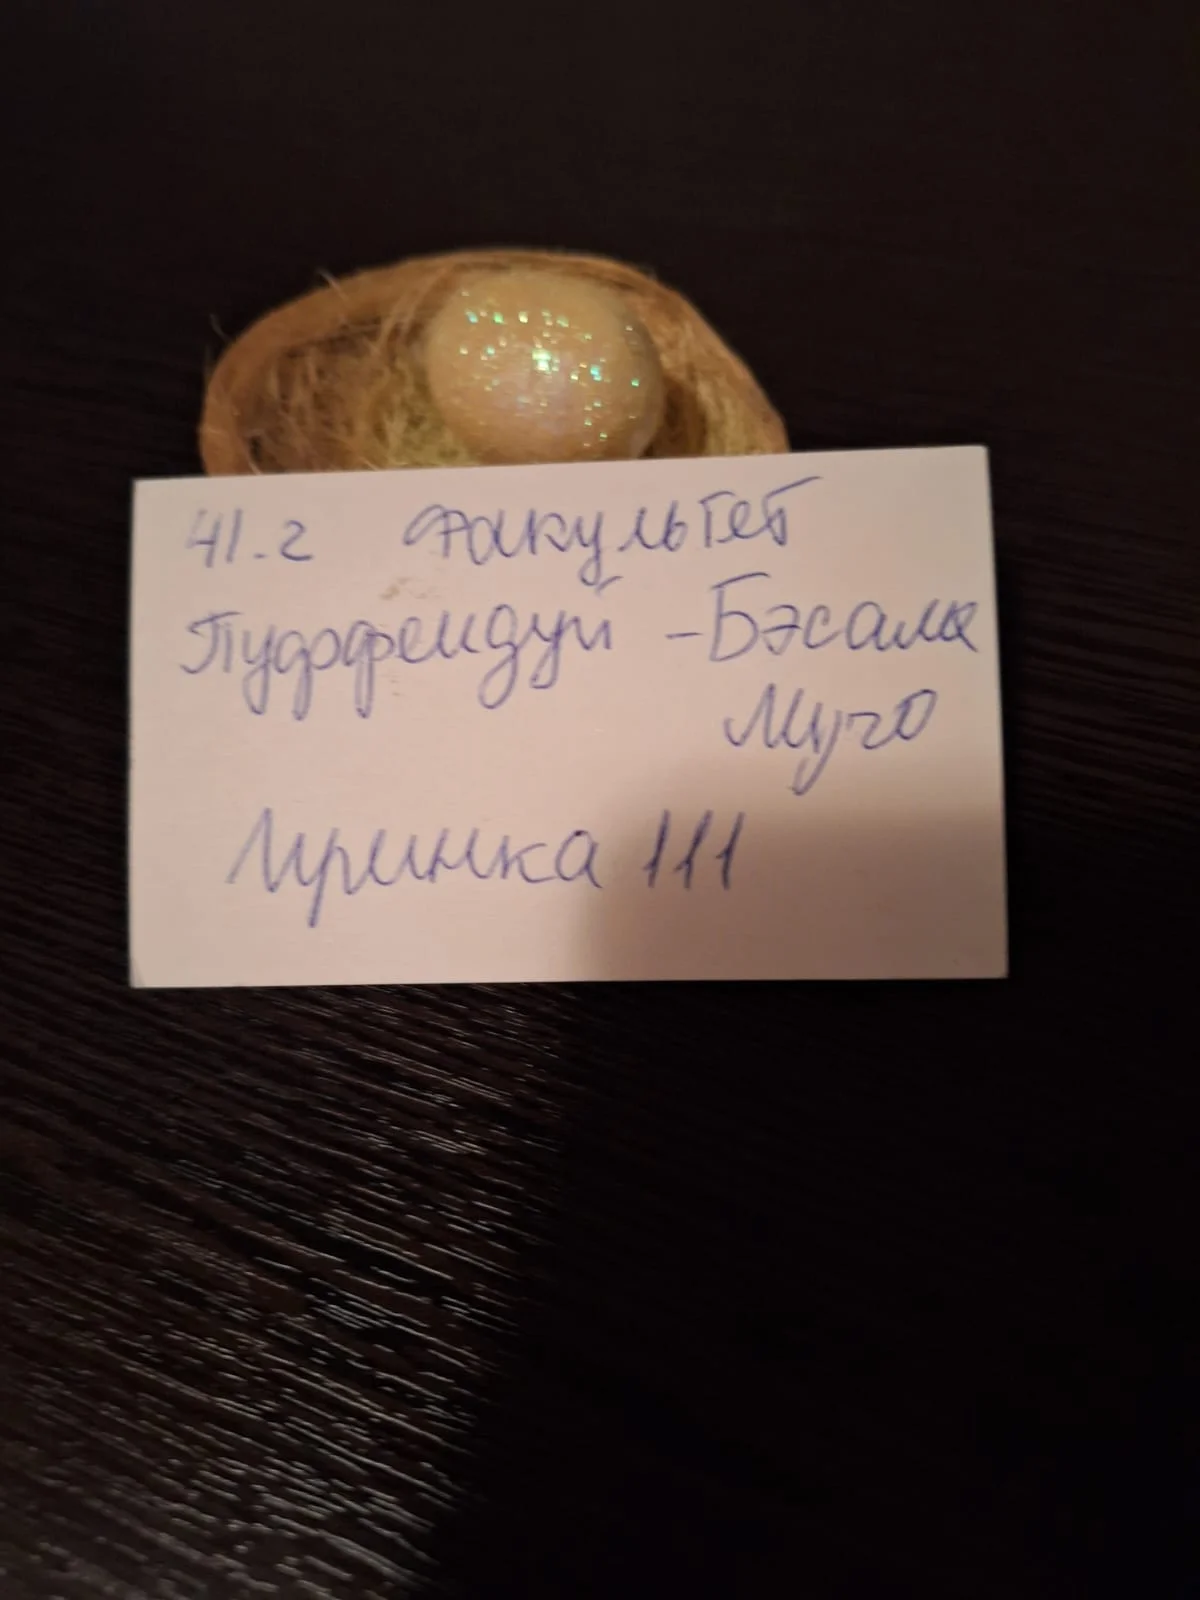 41.г Факультет
Пуффендуй - Бэсаме
Мучо
Иринка 111